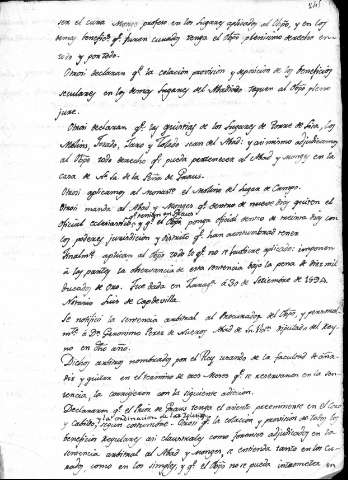 241
ser el cura Monge profeso en los lugares aplicados al Obpo, y en los
demas benefic.s q.e fueren curados tenga el Obpo plenissimo derecho en
todo y por todo.
Otrosi declaran q.e la colación provision y disposicion de los beneficios
seculares en los demas lugares del Abadiado toquen al Obpo pleno
jure.
Otrosi declaran q.e las quintias de los lugares de Torre de
sean del Abad: y asi mismo adjudicamos
al Obpo todo derecho q.e pueda pertenecer al Abad y Monges en la
casa de de la Peña de
Otrosi aplicamos al Monast.o el Molino del lugar de Campo.
Otrosi manda al Abad y Monges q.e dentro de nueve dias quiten el
oficial eclesiastico y q.e el Obpo ponga oficial dentro de treinta dias con
los poderes jurisdicion y distrito q.e han acostumbrado tener
Finalm.te aplican al Obpo todo lo q.e no se hubiere aplicado: imponen
á las partes la observancia de esta sentencia bajo la pena de diez mil
ducados de oro. Fue dada en Zarag.a á 30 de Setiembre de 1594
Notario Luis de Capdevilla.
Se notificó la sentencia arbitral al Procurador del Obpo, y personal
m.te á D.n Geronimo Perez de Abad de S. Diputado del Rey-
no en dho año.
Dichos arbitros nombrados por el Rey usando de la facultad de aña-
dir y quitar en el termino de tres Meses q.e se reservaron en la sen-
tencia, la corrigieron con la siguiente adicion.
Declararon q.e el Prior de tenga el asiento preeminente en el Coro
y Cabildo, segun costumbre. Otrosi q.e la colacion y provision de todos los
beneficios Regulares asi claustrales como forenses adjudicados en la
sentencia arbitral al Abad y Monges, se entienda tanto en los Cu-
rados, como en los simples, y q.e el Obpo no se pueda intrometer en